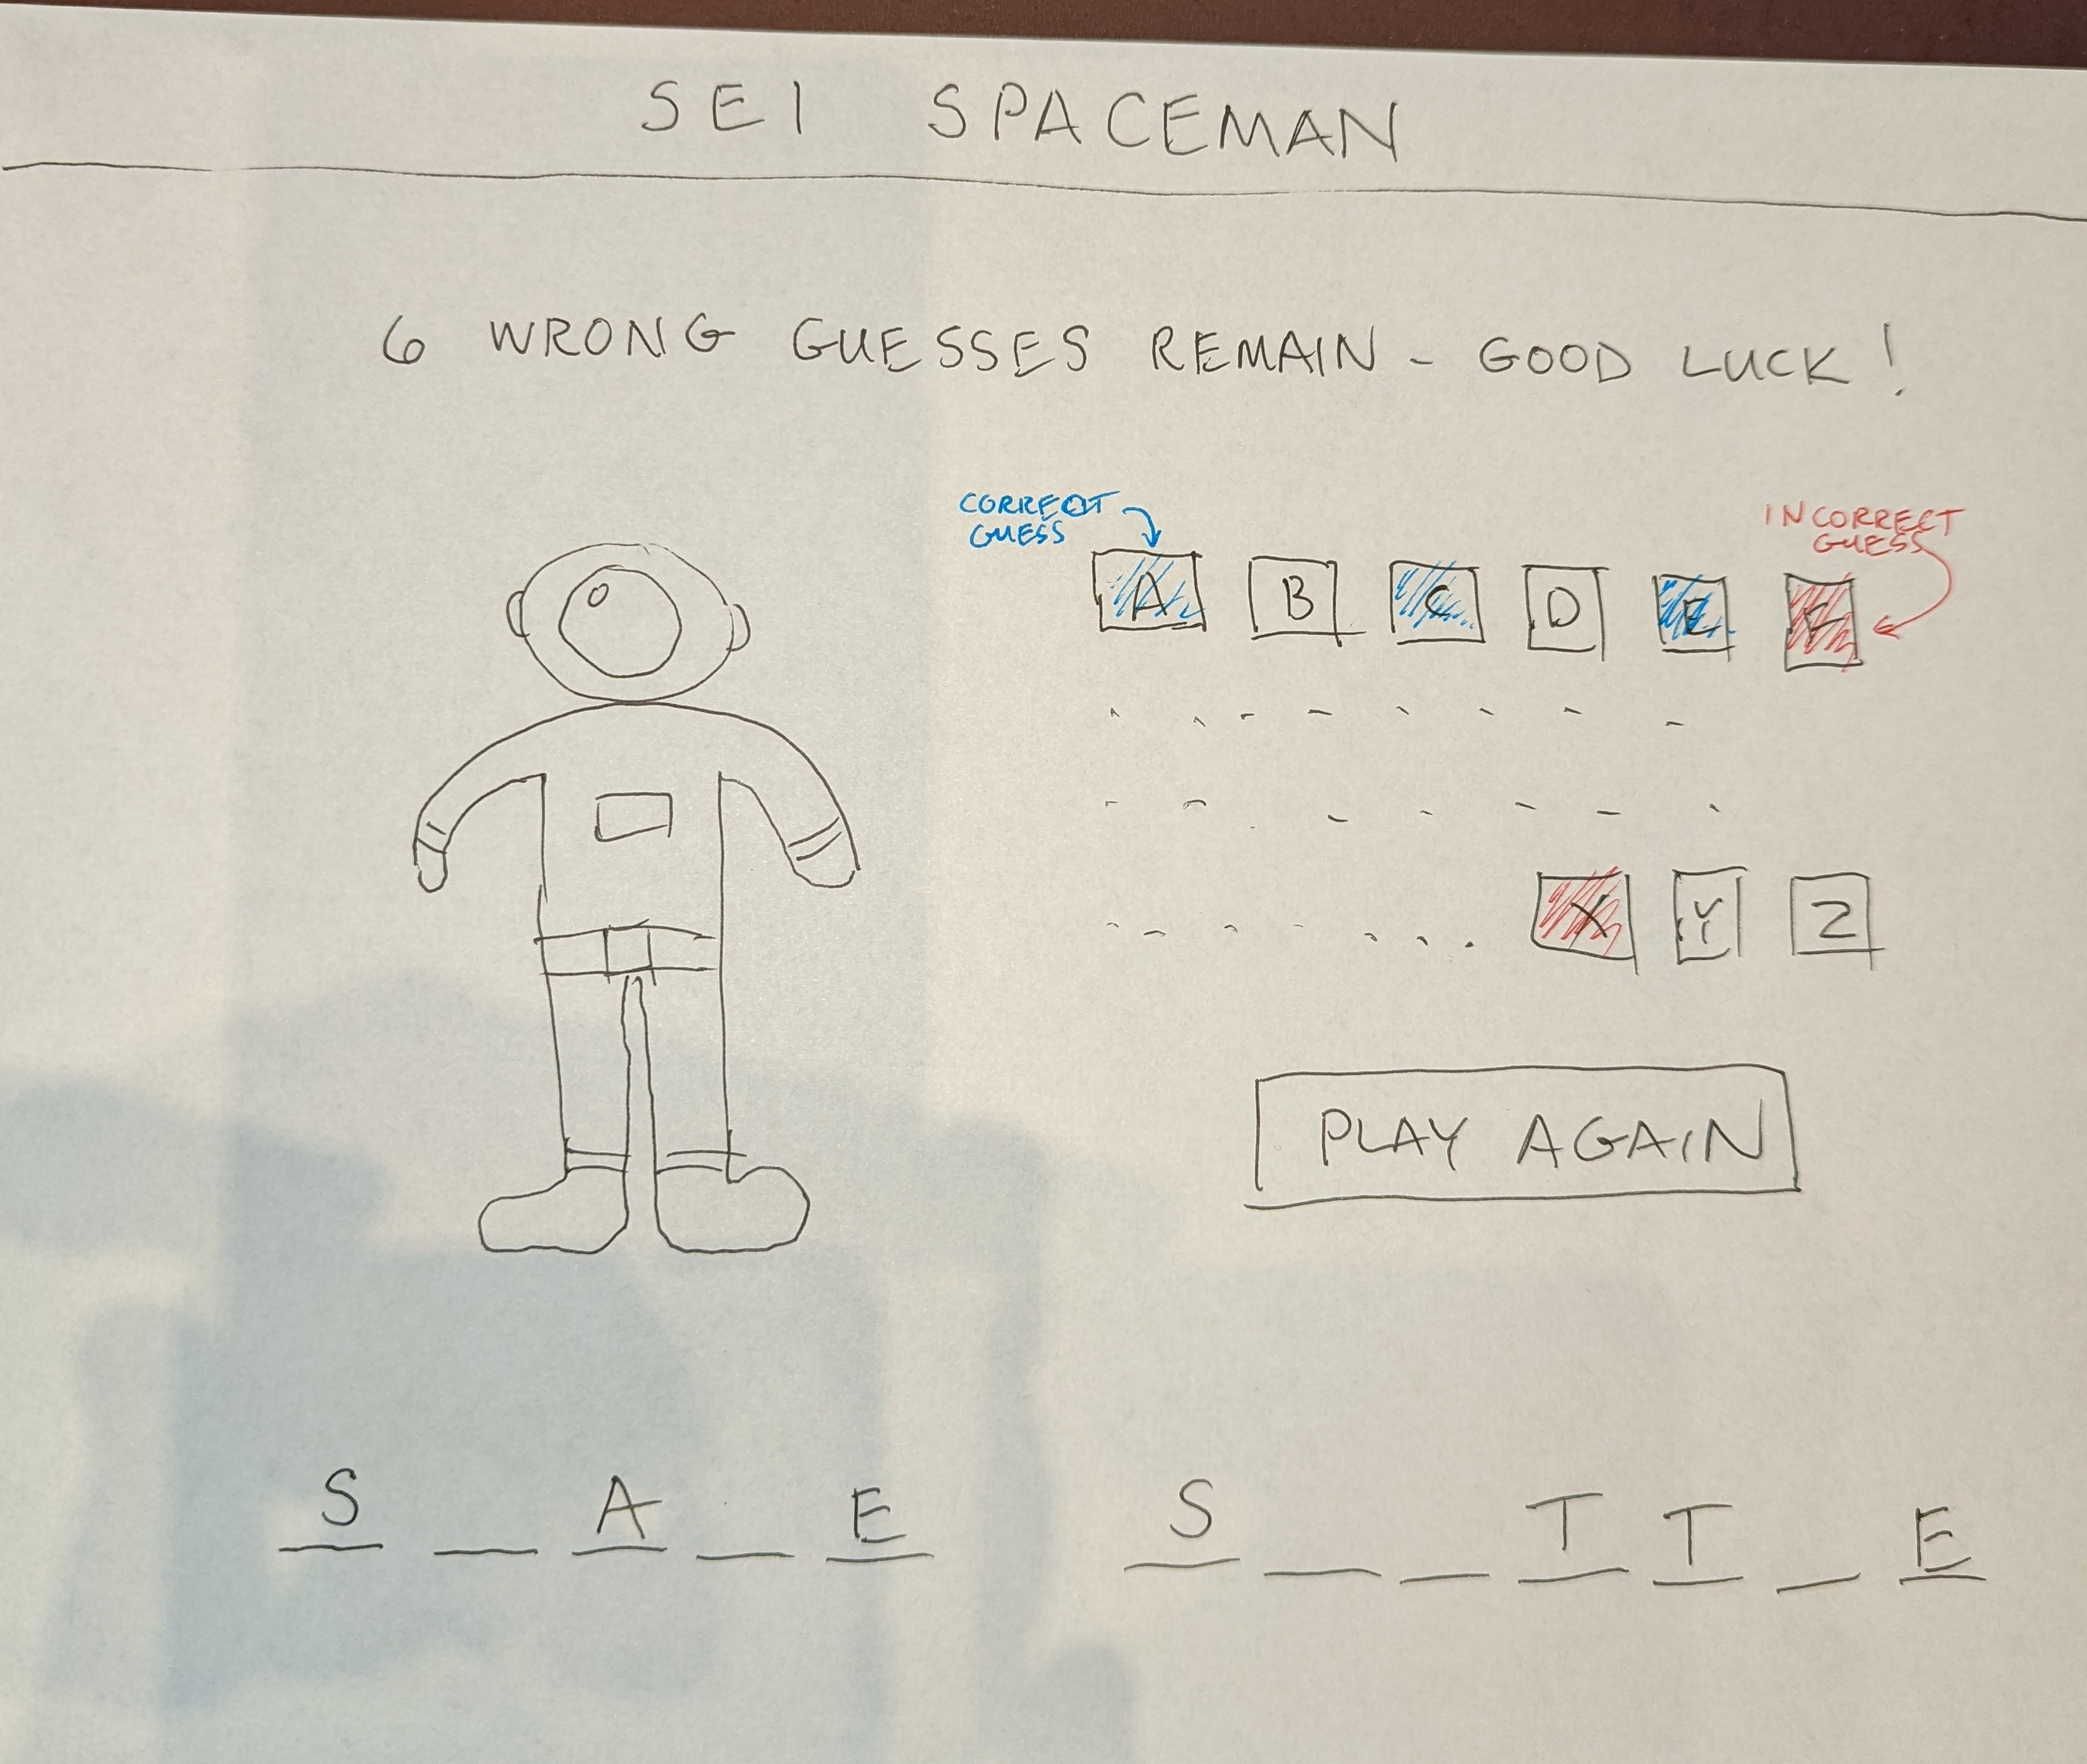 SEI SPACEMAN
6 WRONG GUESSES REMAIN - GOOD LUCK!
CORRECT GUESS
INCORRECT GUESS
A B C D E F
X Y Z
PLAY AGAIN
S _ A _ E S _ _ T T _ E